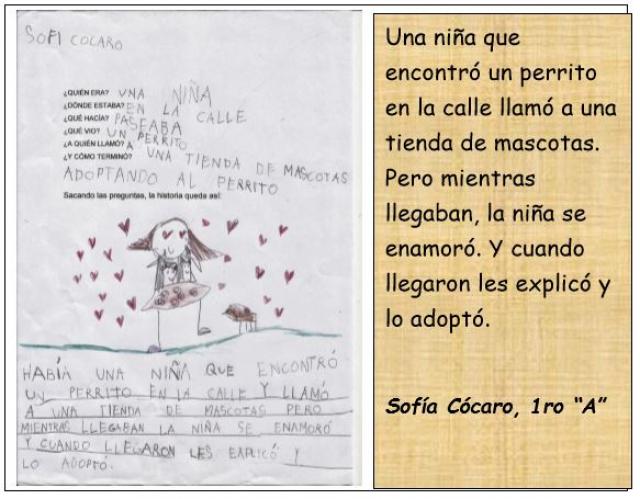 SOFI COCARO
¿QUIÉN ERA? UNA NIÑA
¿DÓNDE ESTABA? EN LA CALLE
¿QUÉ HACÍA? PASEABA
¿QUÉ VIO? UN PERRITO
¿A QUIÉN LLAMÓ? A UNA TIENDA DE MASCOTAS
¿Y CÓMO TERMINÓ?
ADOPTANDO AL PERRITO
Sacando las preguntas, la historia queda así:
HABÍA UNA NIÑA QUE ENCONTRÓ
UN PERRITO EN LA CALLE Y LLAMÓ
A UNA TIENDA DE MASCOTAS PERO
MIENTRAS LLEGABAN LA NIÑA SE ENAMORÓ
Y CUANDO LLEGARON LES EXPLICÓ Y
LO ADOPTÓ.
Una niña que
encontró un perrito
en la calle llamó a una
tienda de mascotas.
Pero mientras
llegaban, la niña se
enamoró. Y cuando
llegaron les explicó y
lo adoptó.
Sofía Cócaro, 1ro “A”